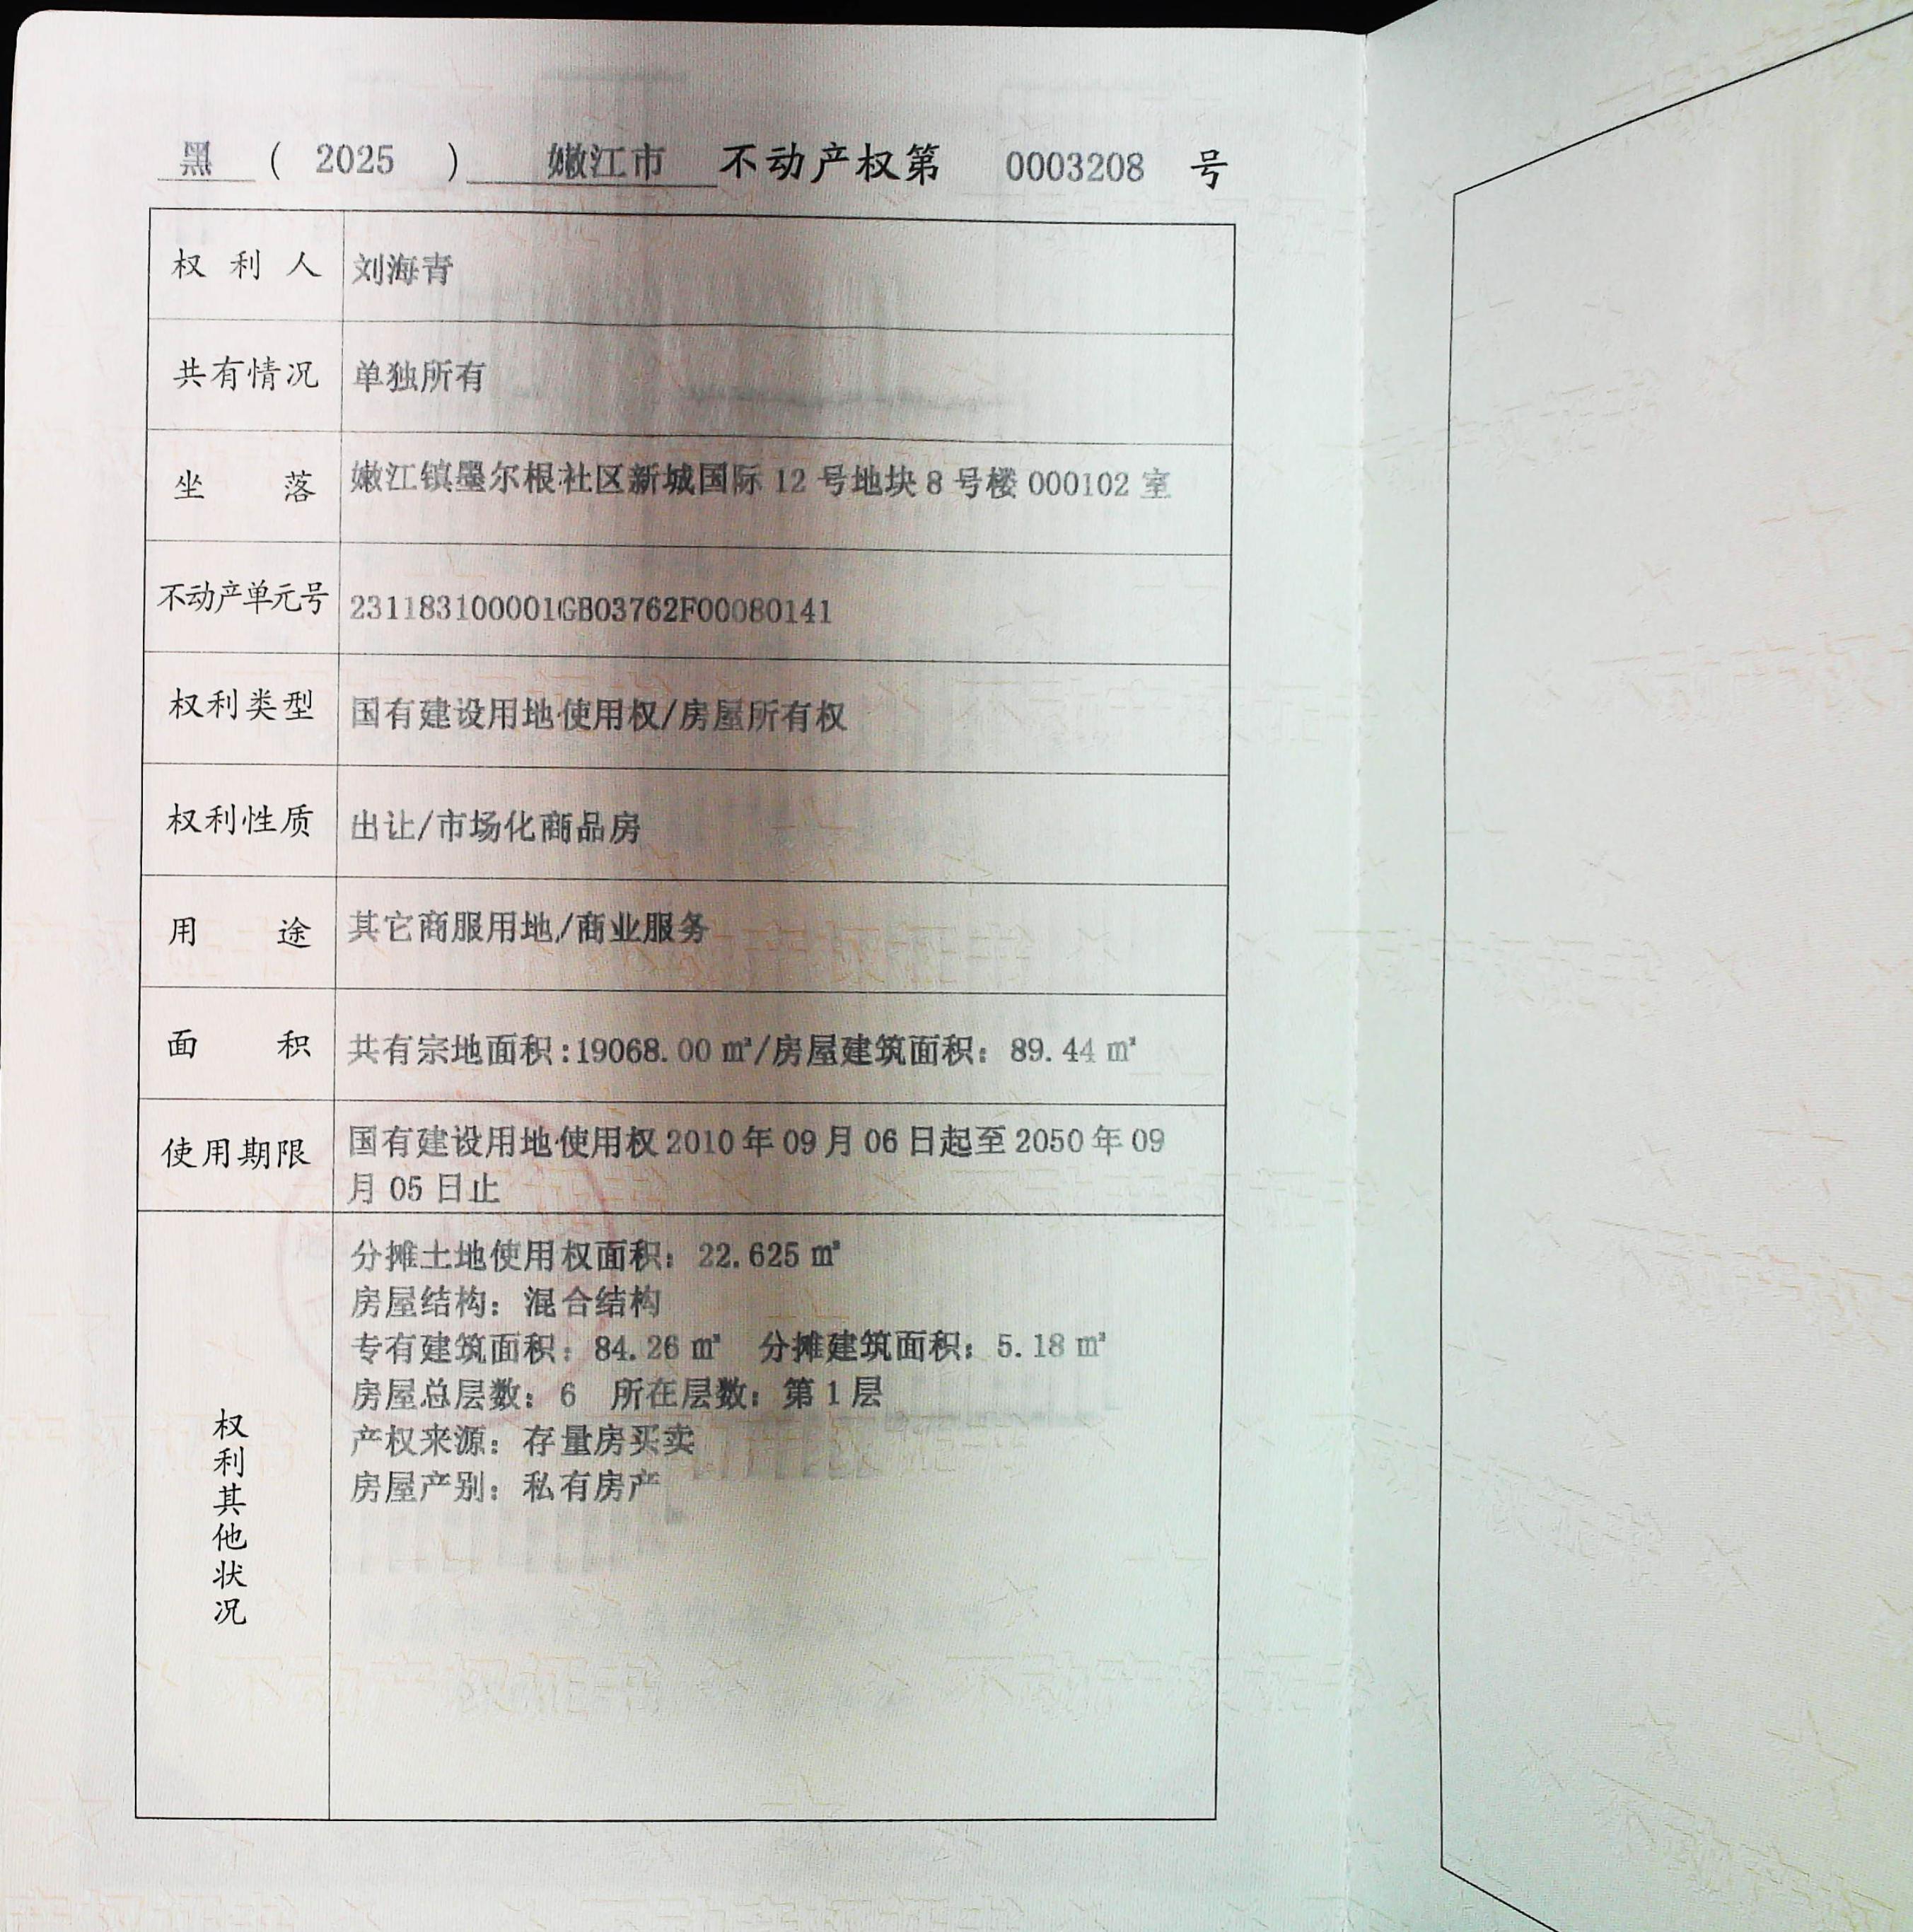 黑 ( 2025 ) 嫩江市 不动产权第 0003208 号
权利人 刘海青
共有情况 单独所有
坐落 嫩江镇墨尔根社区新城国际 12 号地块 8 号楼 000102 室
不动产单元号 231183100001GB03762F00080141
权利类型 国有建设用地使用权/房屋所有权
权利性质 出让/市场化商品房
用途 其它商服用地/商业服务
面积 共有宗地面积:19068.00 ㎡/房屋建筑面积：89.44 ㎡
使用期限 国有建设用地使用权 2010 年 09 月 06 日起至 2050 年 09
月 05 日止
权利其他状况
分摊土地使用权面积：22.625 ㎡
房屋结构：混合结构
专有建筑面积：84.26 ㎡ 分摊建筑面积：5.18 ㎡
房屋总层数：6 所在层数：第 1 层
产权来源：存量房买卖
房屋产别：私有房产